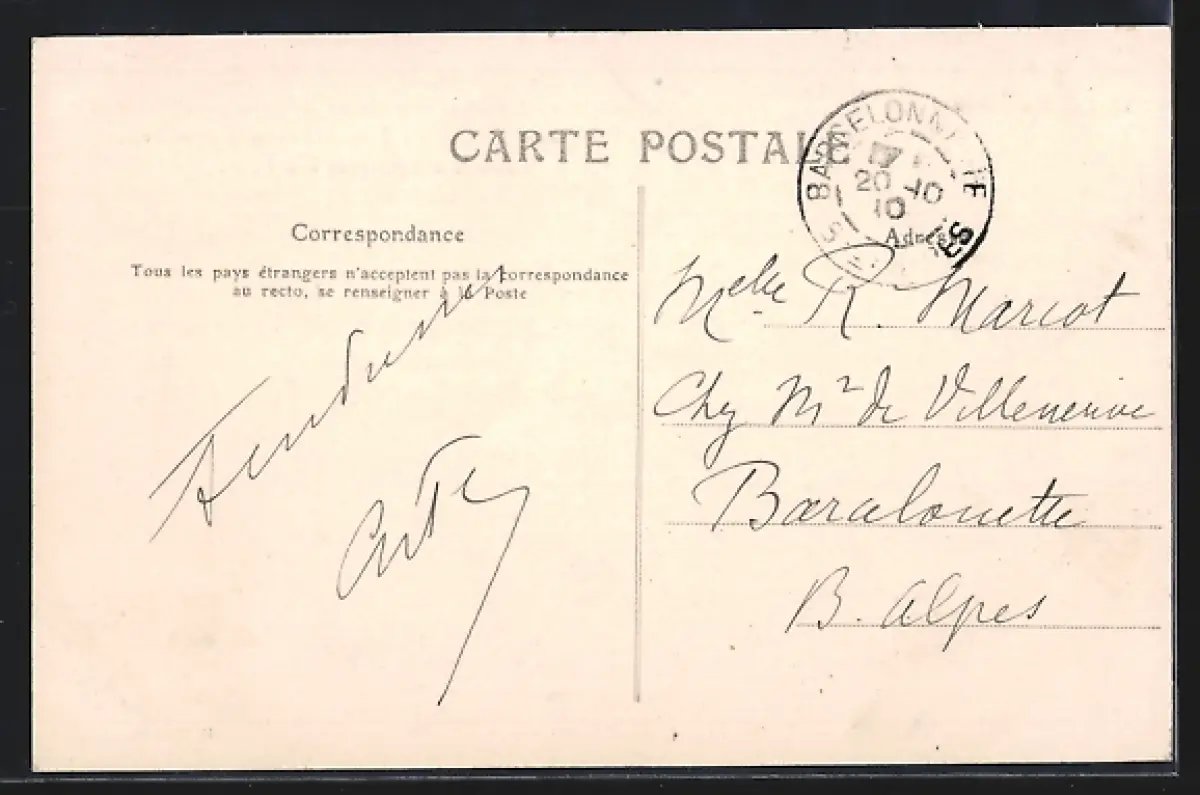 CARTE POSTALE
BARCELONNETTE
20 -10
10
Correspondance
Tous les pays étrangers n'acceptent pas la correspondance
au recto, se renseigner à la Poste
Adresse
Melle R. Marcot
Chez Mr de Villeneuve
B. Alpes